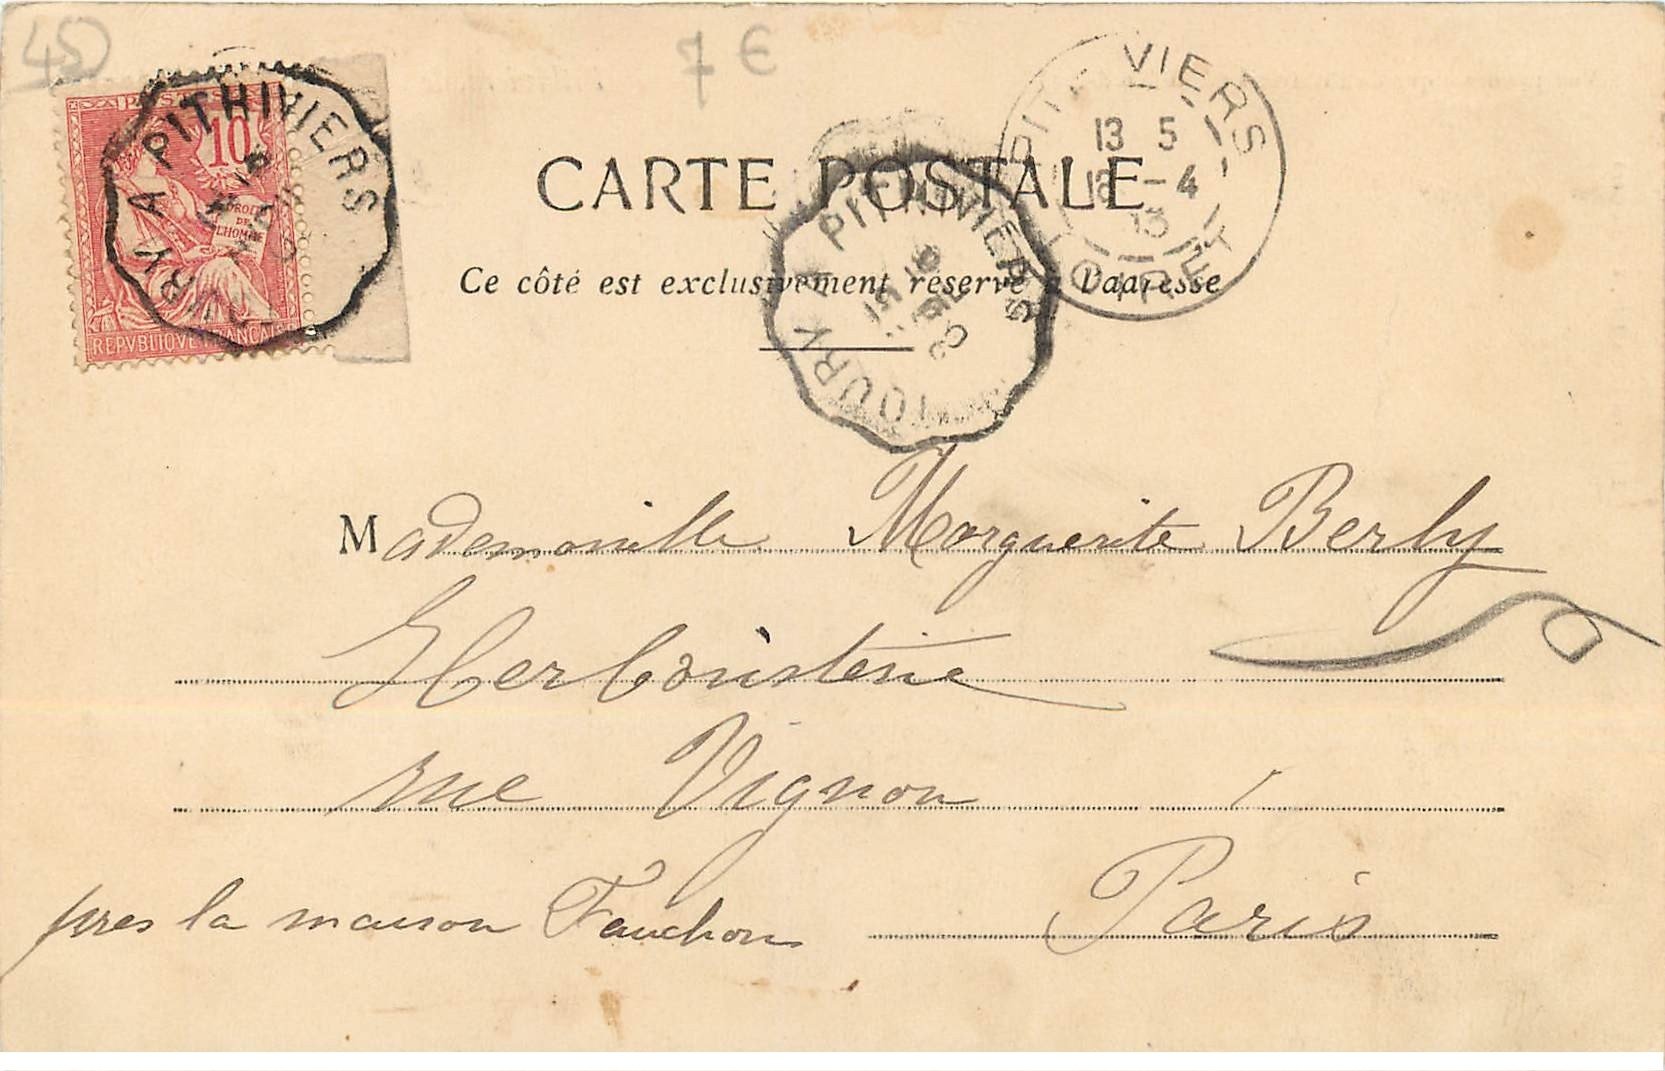 45
7 €
POSTES
10
DROITS
DE
L'HOMME
REPVBLIQVE FRANCAISE
TOURY A PITHIVIERS
TOURY A PITHIVIERS
PITHIVIERS
13 5
18 -4
13
LOIRET
CARTE POSTALE
Ce côté est exclusivement réservé à l'adresse
Mademoiselle Marguerite Berly
Herboristerie
rue Vignon
près la maison Fauchon Paris